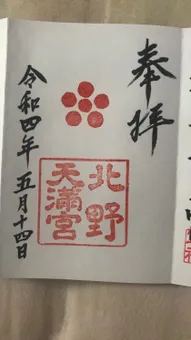 奉拝
北野
天満宮
令和四年 五月十四日